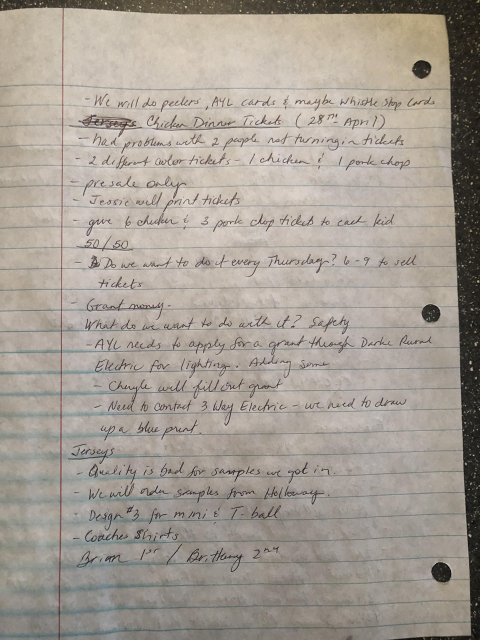 - We will do peelers, AYL cards & maybe Whistle Stop Cards
Jerseys Chicken Dinner Tickets (28TH April)
- had problems with 2 people not turning in tickets
- 2 different color tickets - 1 chicken & 1 pork chop
- presale only
- Jessie will print tickets
- give 6 chicken & 3 pork chop tickets to each kid
50/50
- Do we want to do it every Thursday? 6-9 to sell
tickets
- Grant money -
What do we want to do with it? Safety
- AYL needs to apply for a grant through Darke Rural
Electric for lighting. Adding some
- will fill out grant
- Need to contact 3 Way Electric - we need to draw
up a blue print.
Jerseys
- Quality is bad for samples we got in.
- We will order samples from Holloway.
- Design #3 for mini & T-ball
- Coaches Shirts
Brian 1st / Brittany 2nd